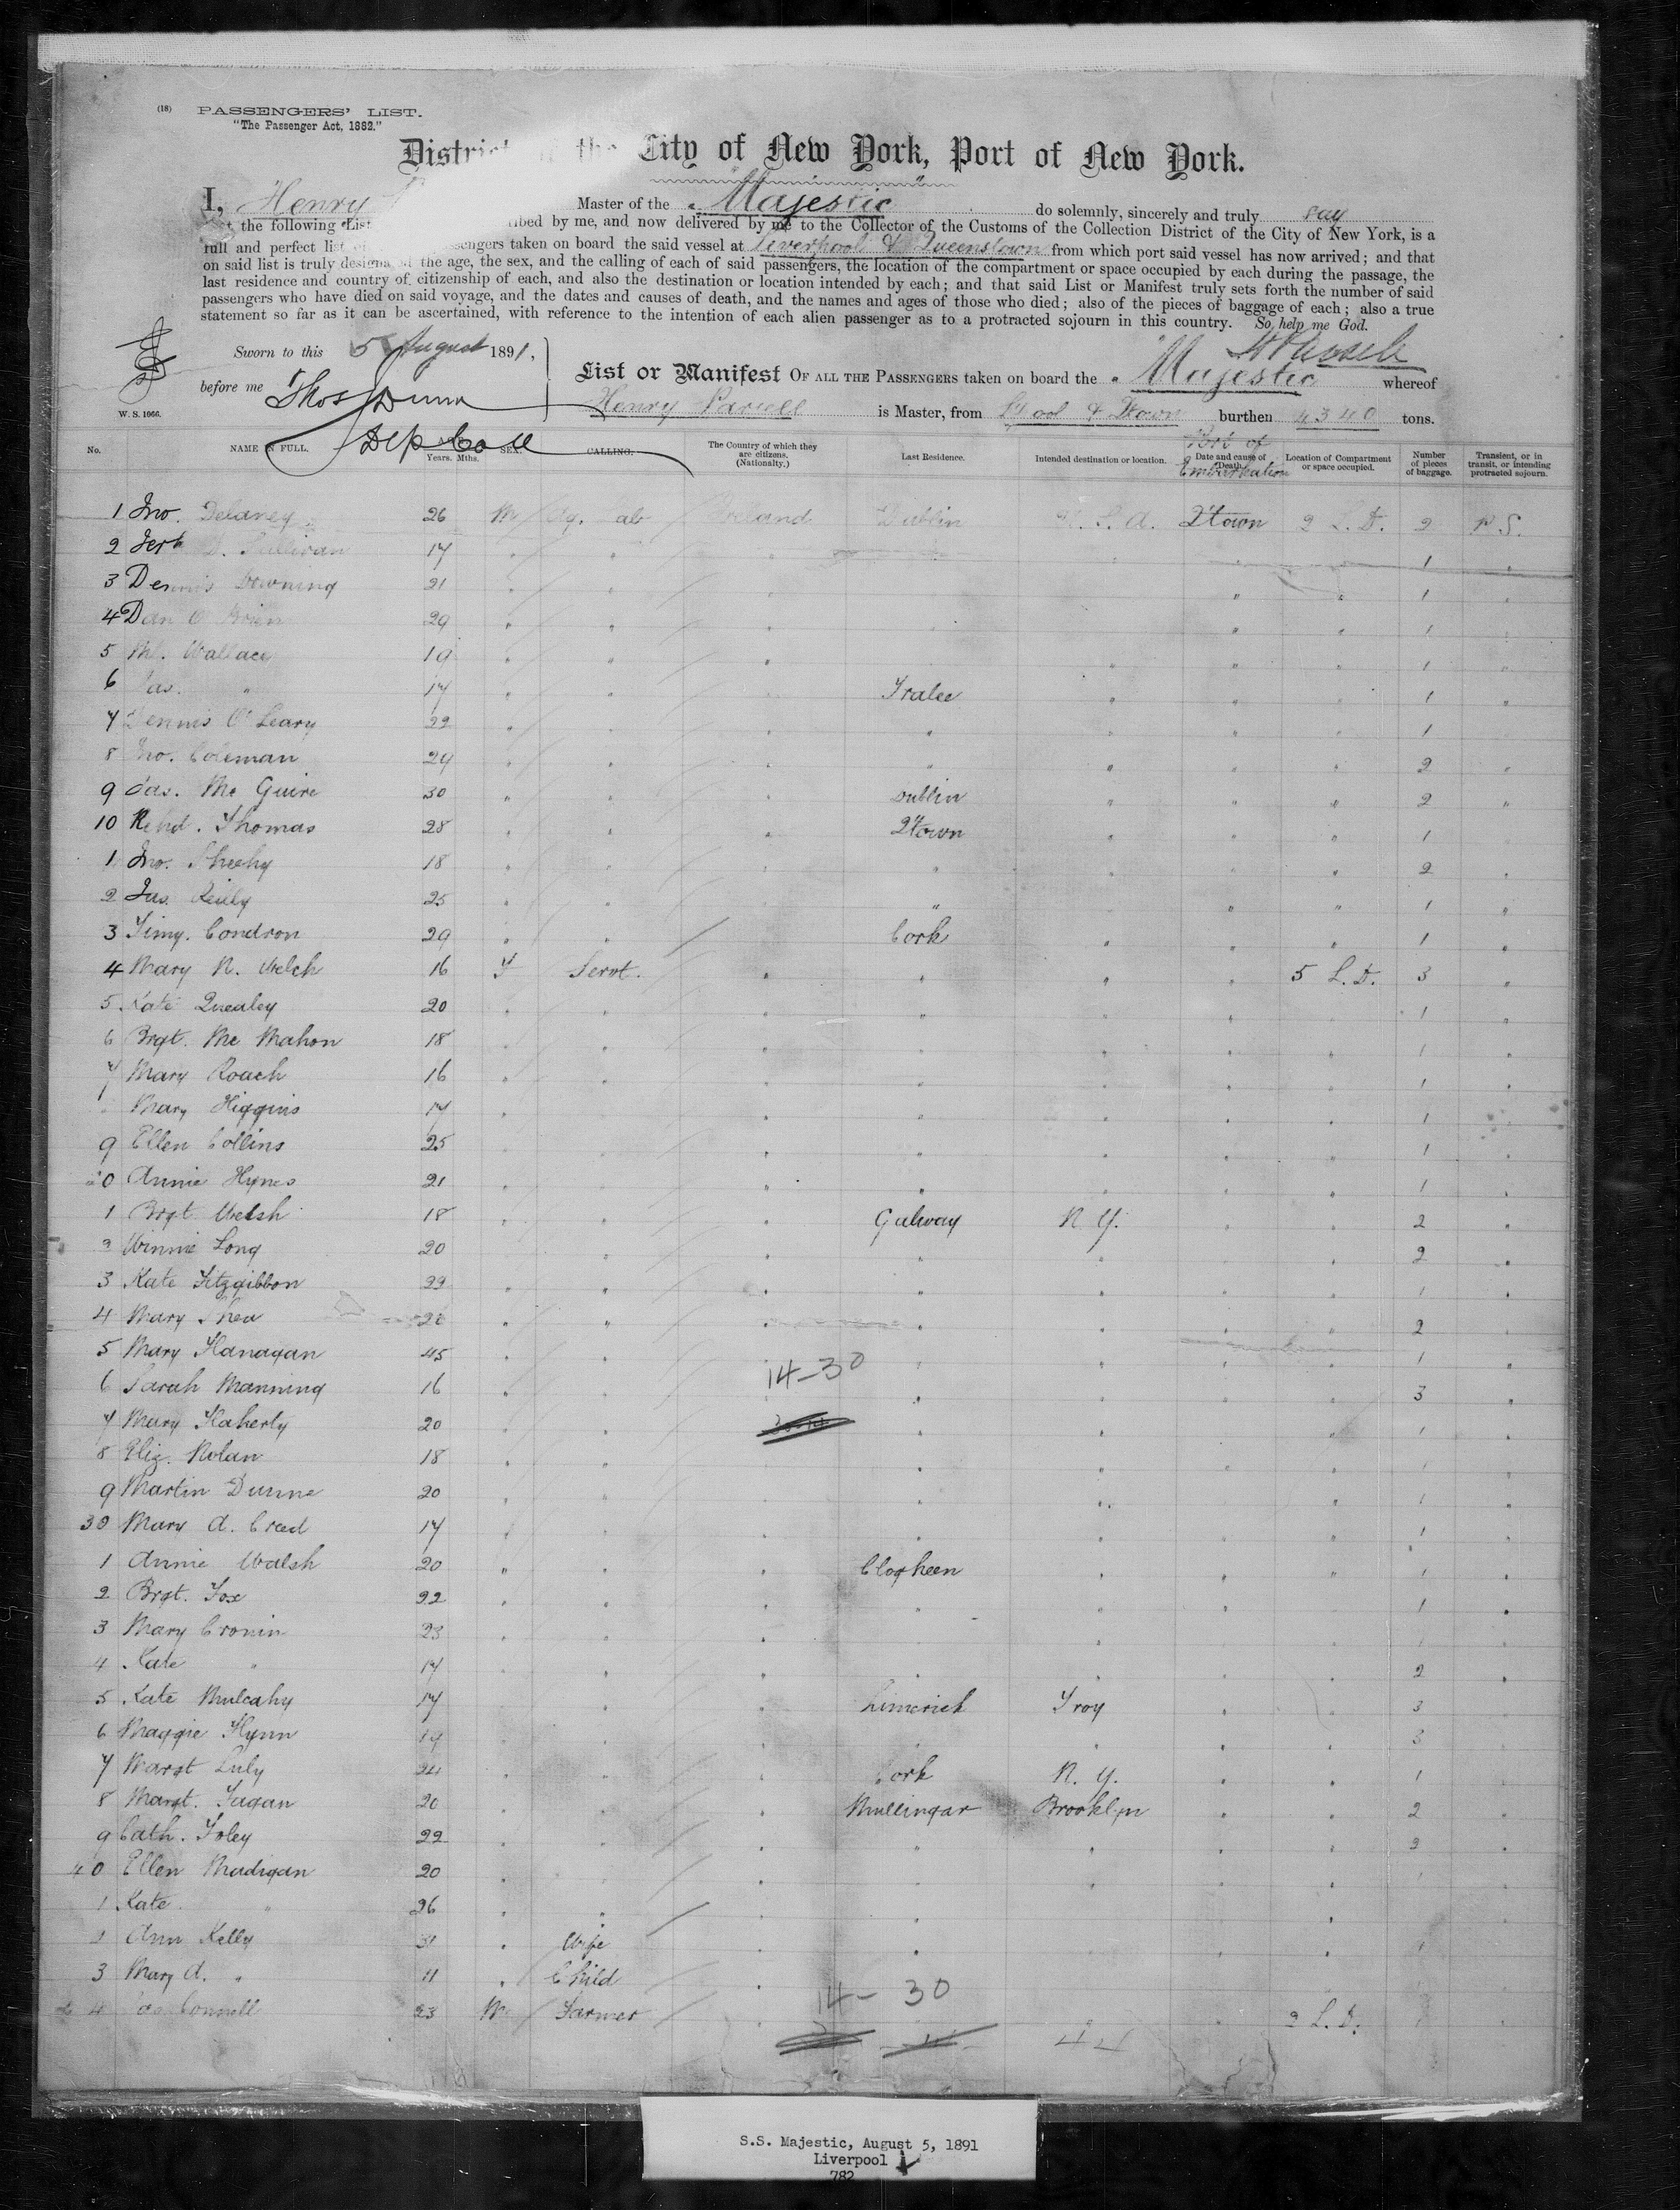 (18) PASSENGERS' LIST.
"The Passenger Act, 1882."
District the City of New York, Port of New York.
I, Henry Master of the "Majestic" do solemnly, sincerely and truly say
the following List ribed by me, and now delivered by me to the Collector of the Customs of the Collection District of the City of New York, is a
full and perfect list of sengers taken on board the said vessel at Liverpool & Queenstown from which port said vessel has now arrived; and that
on said list is truly designa the age, the sex, and the calling of each of said passengers, the location of the compartment or space occupied by each during the passage, the
last residence and country of citizenship of each, and also the destination or location intended by each; and that said List or Manifest truly sets forth the number of said
passengers who have died on said voyage, and the dates and causes of death, and the names and ages of those who died; also of the pieces of baggage of each; also a true
statement so far as it can be ascertained, with reference to the intention of each alien passenger as to a protracted sojourn in this country. So help me God.
Sworn to this 5 August 1891,
before me Thos Dunn
Dep Coll
W. S. 1066.
List or Manifest OF ALL THE PASSENGERS taken on board the "Majestic whereof
Henry Parsell is Master, from L'pool & Qtown burthen 4340 tons.
No. NAME IN FULL. Years. Mths. SEX. CALLING. The Country of which they are citizens. (Nationality.) Last Residence. Intended destination or location. Port of Embarkation Date and cause of Death. Location of Compartment or space occupied. Number of pieces of baggage. Transient, or in transit, or intending protracted sojourn.
1 Jno. Delaney 26 M Ag. Lab Ireland Dublin U. S. A. Qtown 2 L. D. 2 P. S.
2 D. Sullivan 17 " " " 1 "
3 Dennis Downing 21 " " " " 1 "
4 Dan O'Brien 29 " " " " " 1 "
5 Ml. Wallace 19 " " " " " 1 "
6 Jas. " 17 " " Tralee " " " 1 "
7 Dennis O'Leary 22 " " " " " " 1 "
8 Jno. Coleman 24 " " " " " " " 2 "
9 Jas. Mc Guire 30 " " " Dublin " " " 2 "
10 Richd. Thomas 28 " " " Qtown " " " 1
1 Jno. Sheehy 18 " " " " " " 2 "
2 Jas. Reilly 25 " " " " " 1 "
3 Timy. Condron 29 " " Cork " " " 1 "
4 Mary N. Welch 16 F Servt. " " " " 5 L. D. 3 "
5 Kate Quealey 20 " " " " " " " 1 "
6 Brgt. Mc Mahon 18 " " " " " " 1 "
7 Mary Roach 16 " " " " " " 1 "
Mary Higgins 17 " " " " " " 1 "
9 Ellen Collins 25 " " " " " " " 1 "
20 Annie Hynes 21 " " " " " " " 1 "
1 Brgt. Welsh 18 " " " Galway N. Y. " " 2 "
2 Winnie Long 20 " " " " " 2 "
3 Kate Fitzgibbon 22 " " " " " " " 1 "
4 Mary Shea " " " " " " " 2
5 Mary Flanagan 45 " " " " " " " 1 "
14-30
6 Sarah Manning 16 " " " " " " 3 "
7 Mary Flaherty 20 " " " " " 1 "
8 Eliz. Nolan 18 " " " " " " 1 "
9 Martin Dunne 20 " " " " " 1 "
30 Mary A. Creed 17 " " " " " 1 "
1 Annie Walsh 20 " " " Clogheen " " " 1 "
2 Brgt. Fox 22 " " " " " " " 1 "
3 Mary Cronin 23 " " " " "
4 Kate " 17 " " " " " " " 2 "
5 Kate Mulcahy 17 " " " Limerick Troy " " 3 "
6 Maggie Flynn 19 " " " " " " 3
7 Margt Luly 24 " " " Cork N. Y. " " 1 "
8 Margt. Fagan 20 " " " Mullingar Brooklyn " " 2 "
9 Cath. Foley 22 " " " " " " " 2 "
40 Ellen Madigan 20 " " " " " " " 1 "
1 Kate " 26 " " " " "
2 Ann Kelly 31 " Wife " " " " 1 "
3 Mary A. " 11 " Child "
14-30
4 Connell 23 M Farmer " 2 L. D.
S.S. Majestic, August 5, 1891
Liverpool
782